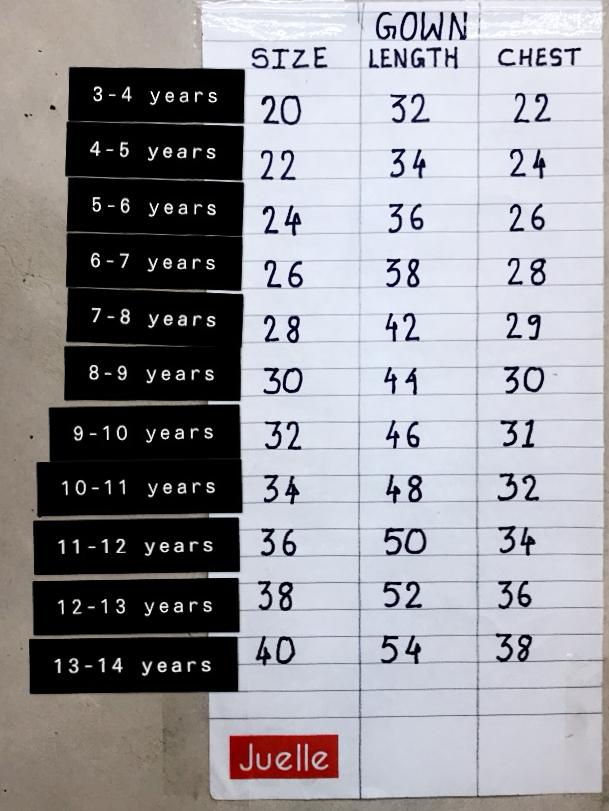 GOWN
SIZE LENGTH CHEST
3-4 years 20 32 22
4-5 years 22 34 24
5-6 years 24 36 26
6-7 years 26 38 28
7-8 years 28 42 29
8-9 years 30 44 30
9-10 years 32 46 31
10-11 years 34 48 32
11-12 years 36 50 34
12-13 years 38 52 36
13-14 years 40 54 38
Juelle